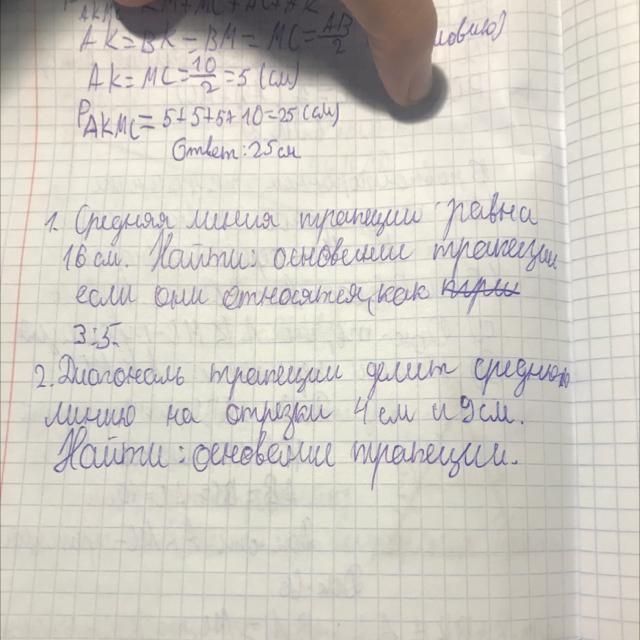 AK = BK = BM = MC = AB/2
AK = MC = 10/2 = 5 (см)
P AKMC = 5+5+5+10=25 (см)
Ответ: 25 см
1. Средняя линия трапеции равна
16 см. Найти: основении трапеции
если они относятся, как
3:5.
2. Диагональ трапеции делит среднюю
линию на отрезки 4 см и 9 см.
Найти: основение трапеции.